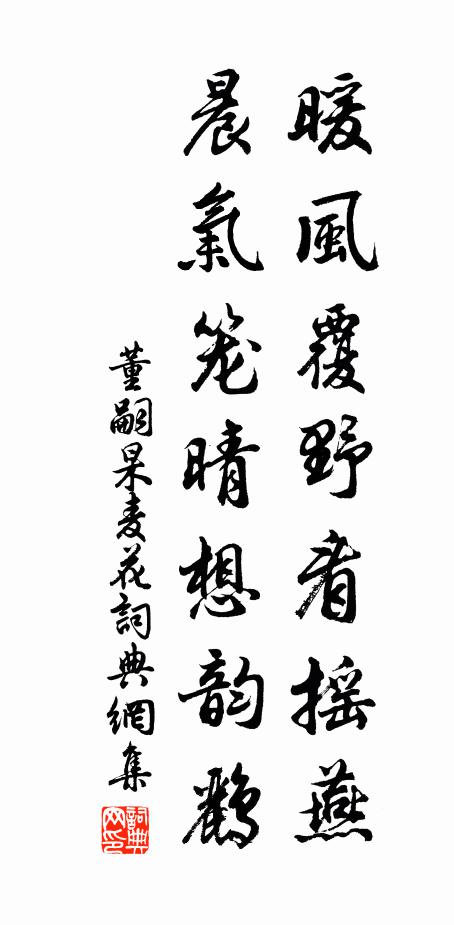 暖風覆野看摇燕
晨氣笼晴想韵鸛
董嗣杲麦花詞典網集
詞典网印